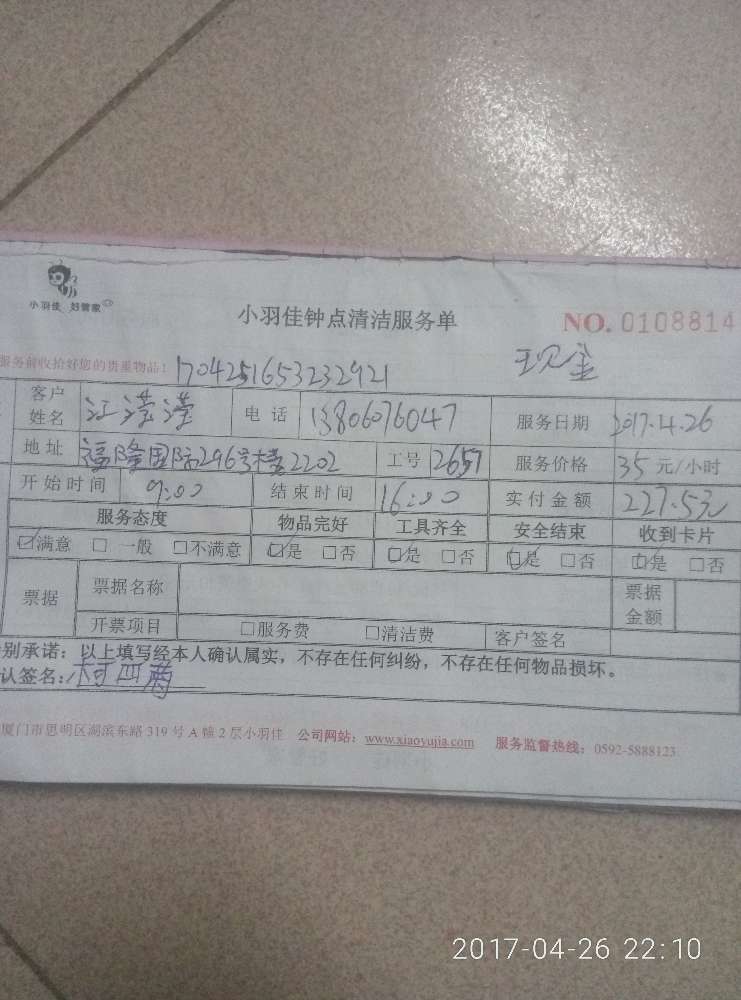 小羽佳 好管家
小羽佳钟点清洁服务单 NO. 0108814
服务前收拾好您的贵重物品! 1704251653232921 现金
客户姓名 江滢滢 电话 13806076047 服务日期 2017.4.26
地址 福隆国际296号楼2202 工号 2657 服务价格 35元/小时
开始时间 9:00 结束时间 16:00 实付金额 227.53元
服务态度 物品完好 工具齐全 安全结束 收到卡片
☑满意 □一般 □不满意 ☑是 □否 ☑是 □否 ☑是 □否 ☑是 □否
票据 票据名称 票据金额
开票项目 □服务费 □清洁费 客户签名
别承诺:以上填写经本人确认属实,不存在任何纠纷,不存在任何物品损坏。
认签名:柯四满
厦门市思明区湖滨东路319号A幢2层小羽佳 公司网站:www.xiaoyujia.com 服务监督热线:0592-5888123
2017-04-26 22:10